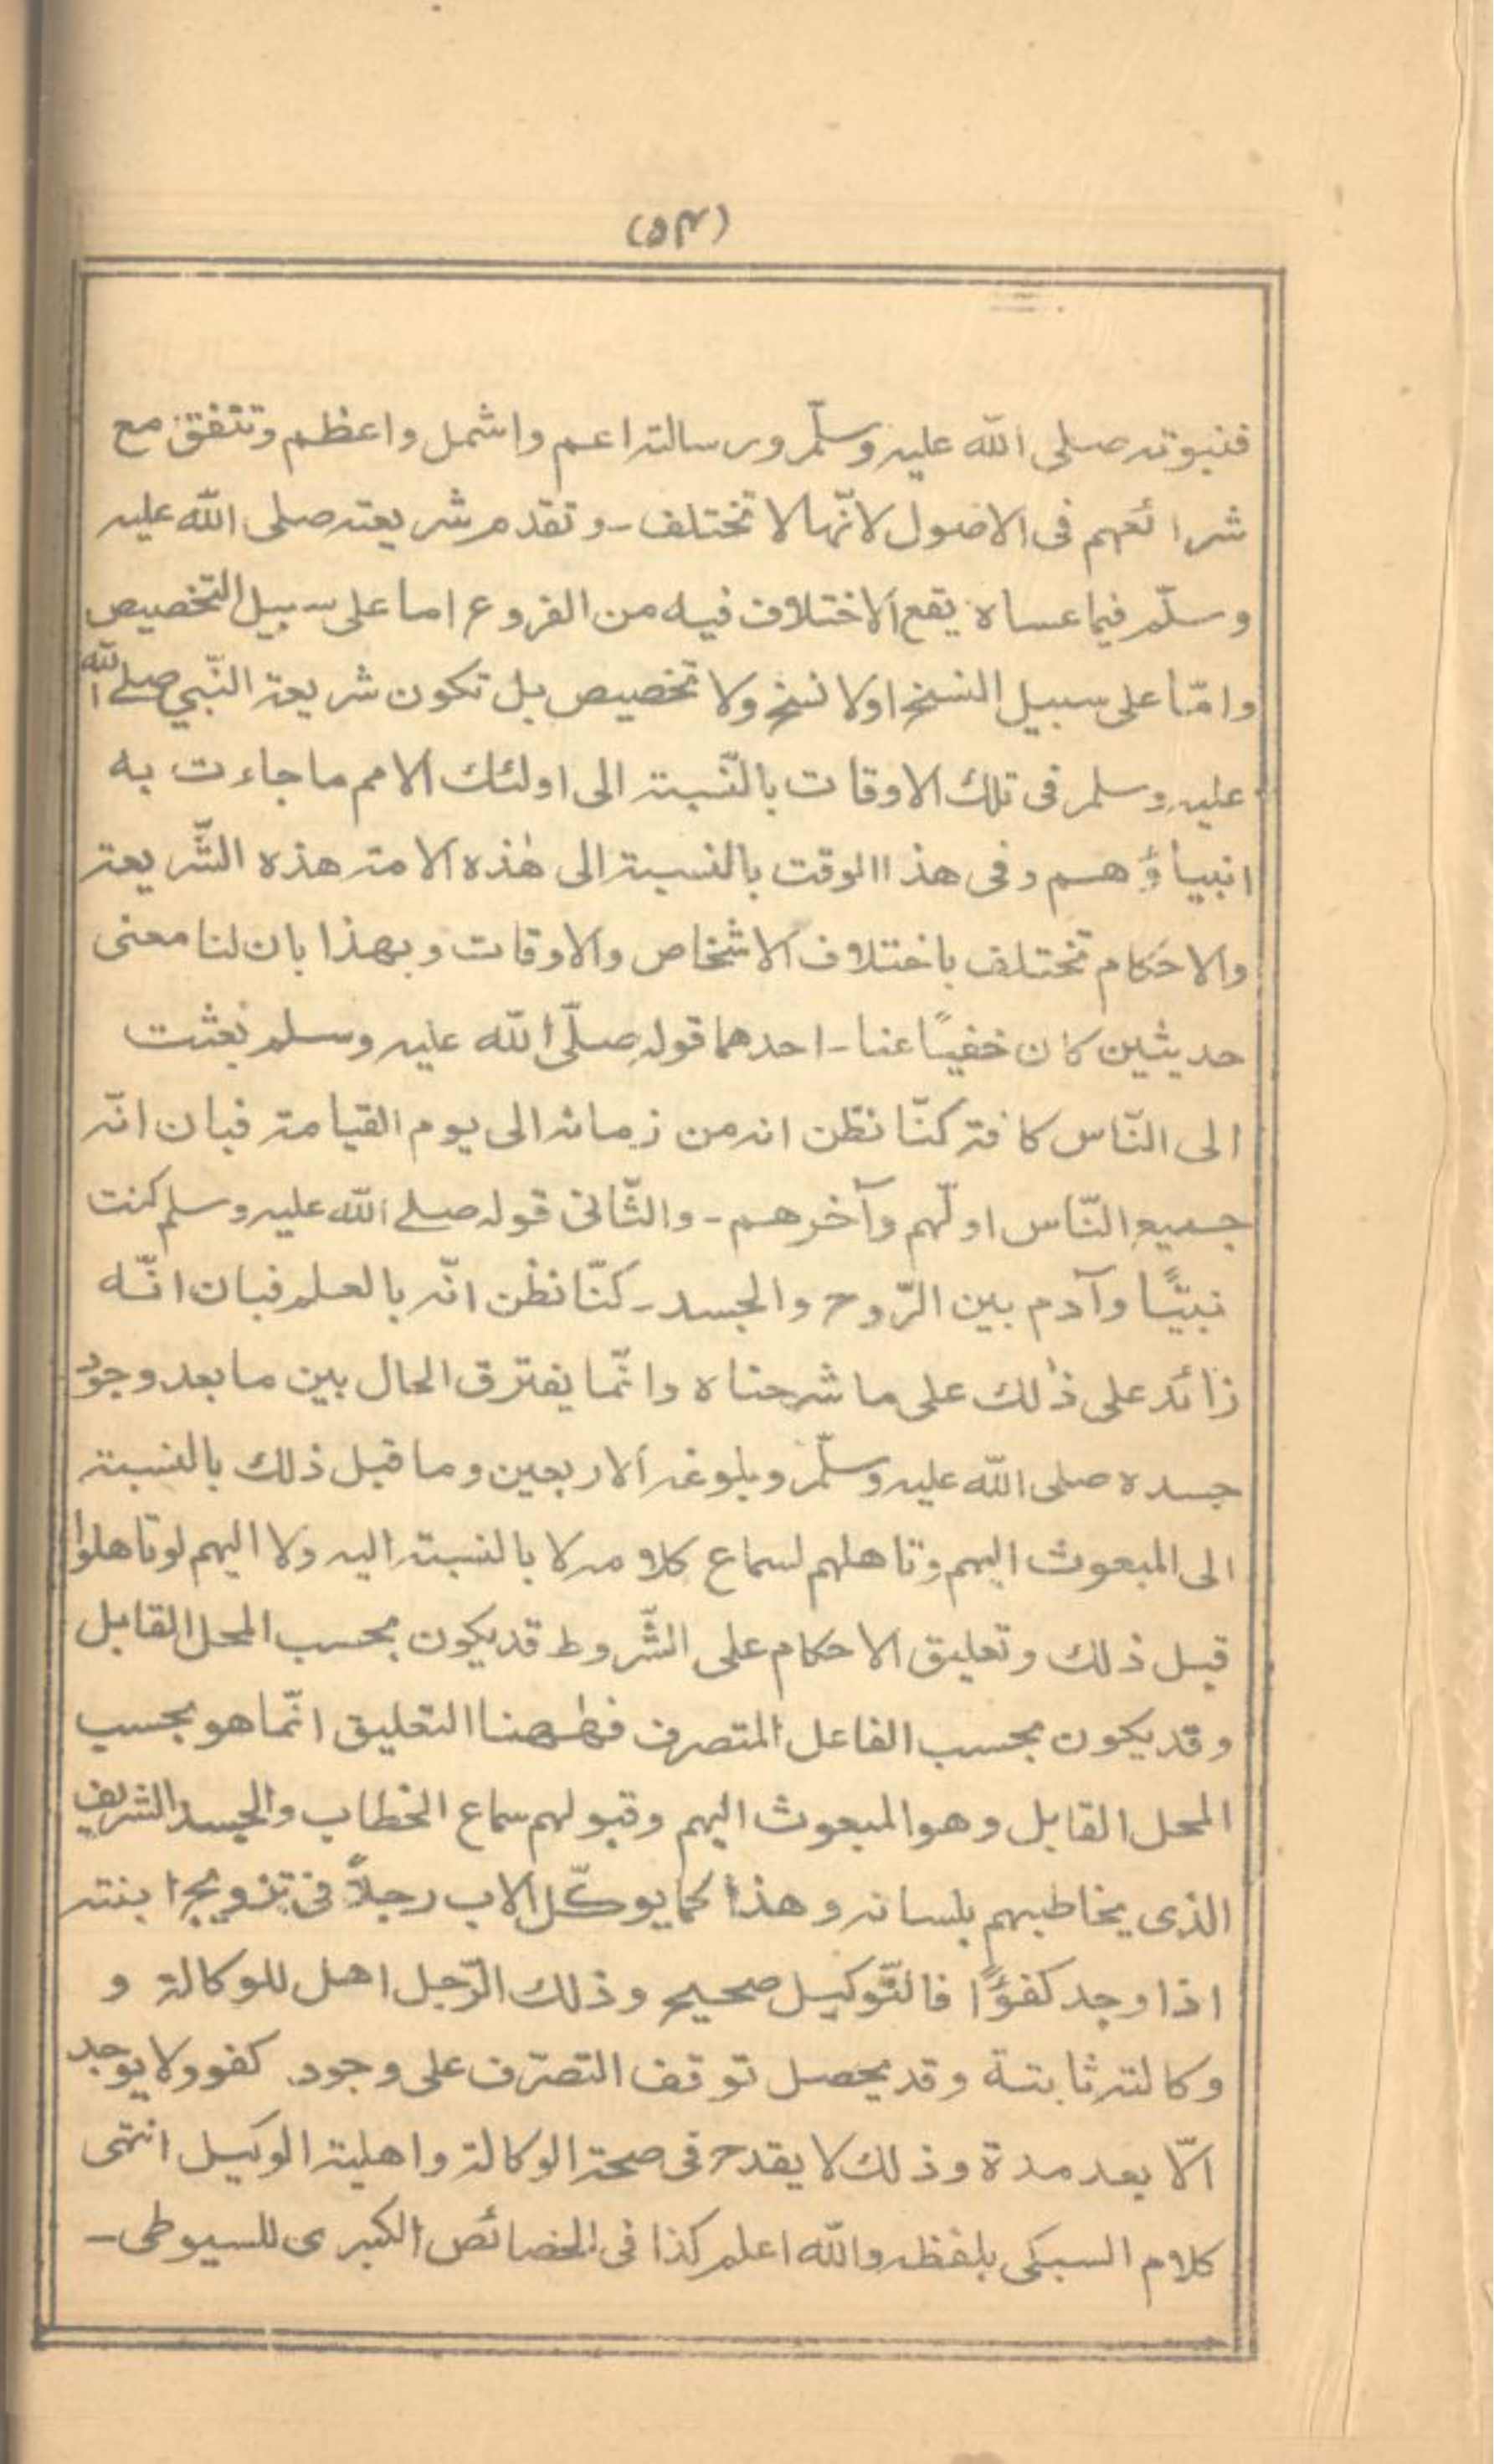 (۵۴)
فنبوته صلى الله عليه وسلّم ورسالته اعم واشمل واعظم وتتفق مع
شرائعهم فى الاصول لانّها لا تختلف - وتقدم شريعته صلى الله عليه
وسلّم فيما عساه يقع الاختلاف فيه من الفروع اما على سبيل التخصيص
وامّا على سبيل النسخ اولا نسخ ولا تخصيص بل تكون شريعة النّبي صلے الله
عليه وسلم فى تلك الاوقات بالنّسبة الى اولئك الامم ما جاءت به
انبياؤهم وفى هذا الوقت بالنسبة الى هٰذه الامة هذه الشّريعة
والاحكام تختلف باختلاف الاشخاص والاوقات وبهذا بان لنا معنى
حديثين كان خفيًا عنا - احدهما قوله صلّى الله عليه وسلم بعثت
الى النّاس كافة كنّا نظن انه من زمانه الى يوم القيامة فبان انّه
جميع النّاس اولّهم وآخرهم - والثّانى قوله صلے الله عليه وسلم كنت
نبيًّا وآدم بين الرّوح والجسد - كنّا نظن انّه بالعلم فبان انّه
زائد على ذٰلك على ما شرحناه وانّما يفترق الحال بين ما بعد وجود
جسده صلى الله عليه وسلّم وبلوغه الاربعين وما قبل ذلك بالنسبة
الى المبعوث اليهم وتاهلهم لسماع كلامه لا بالنسبة اليه ولا اليهم لو تاهلوا
قبل ذلك وتعليق الاحكام على الشّروط قد يكون بحسب المحل القابل
وقد يكون بحسب الفاعل المتصرف فهٰهنا التعليق انّما هو بحسب
المحل القابل وهو المبعوث اليهم وقبولهم سماع الخطاب والجسد الشريف
الذى يخاطبهم بلسانه وهذا كما يوكّل الاب رجلاً فى تزويج ابنته
اذا وجد كفؤًا فالتّوكيل صحيح وذلك الرّجل اهل للوكالة و
وكالته ثابتة وقد يحصل توقف التصرّف على وجود كفو ولا يوجد
الّا بعد مدة وذلك لا يقدح فى صحة الوكالة واهلية الوكيل انتهى
كلام السبكى بلفظه والله اعلم كذا فى الخصائص الكبرى للسيوطى -